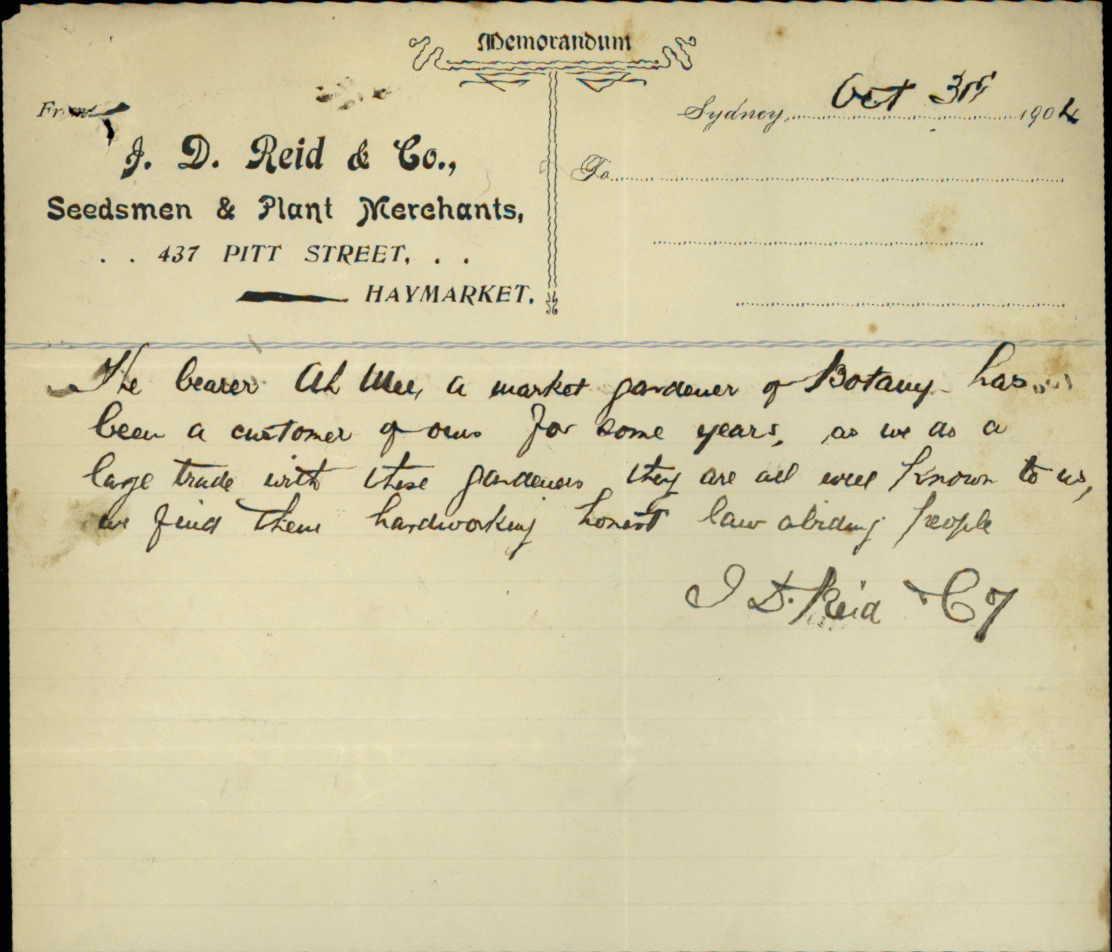 Memorandum
From
Sydney, Oct 31st 1904
J. D. Reid & Co.,
To
Seedsmen & Plant Merchants,
. . 437 PITT STREET, . .
HAYMARKET.
The bearer Ah Wee, a market gardener of Botany has
been a customer of ours for some years, as we do a
large trade with these gardeners they are all well known to us,
we find them hardworking honest law abiding people
J D. Reid & Cy